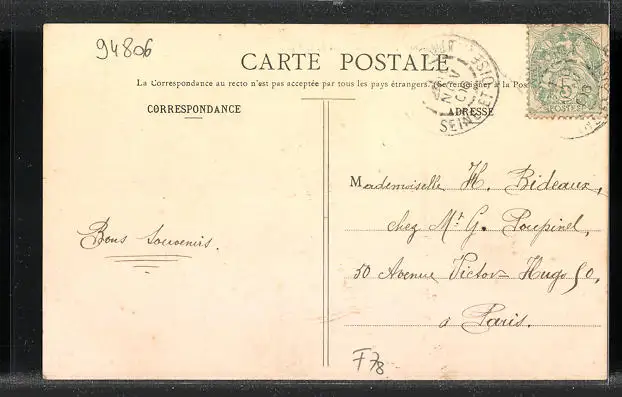 94806
CARTE POSTALE
La Correspondance au recto n'est pas acceptée par tous les pays étrangers. (Se renseigner à la Pos
CORRESPONDANCE
ADRESSE
SEINE ET OISE
POSTES
Mademoiselle H. Bideaux,
chez Mr. G. Poupinel,
50 Avenue Victor-Hugo 50,
à Paris.
Bons Souvenirs.
F78